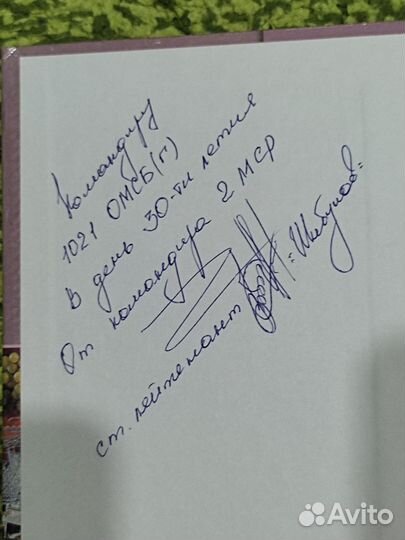 Командиру
1021 ОМСБ(г)
В день 30-ти летия
От командира 2 МСР
ст. лейтенант
Avito